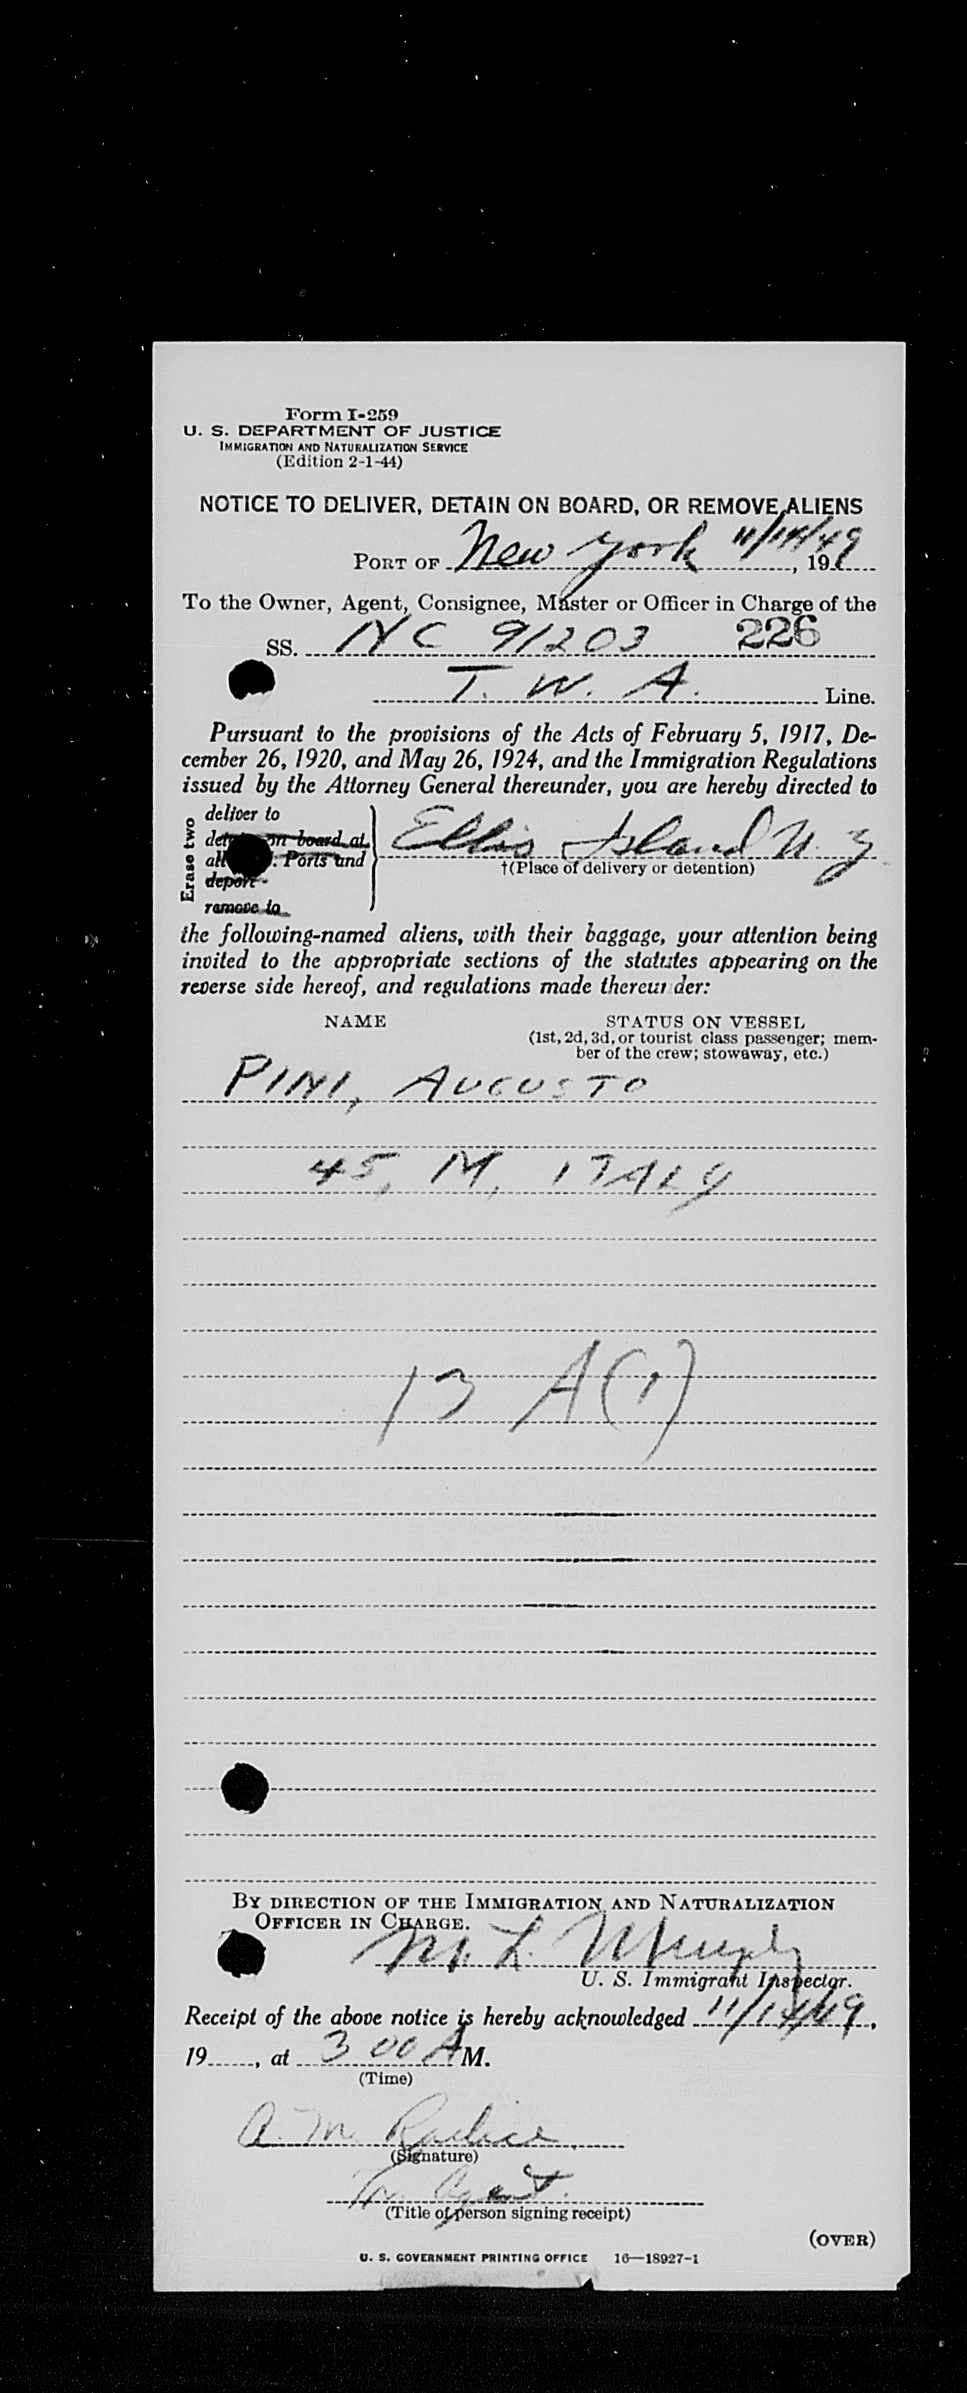 Form I-259
U. S. DEPARTMENT OF JUSTICE
IMMIGRATION AND NATURALIZATION SERVICE
(Edition 2-1-44)
NOTICE TO DELIVER, DETAIN ON BOARD, OR REMOVE ALIENS
PORT OF New York 11/14/49, 19
To the Owner, Agent, Consignee, Master or Officer in Charge of the
SS. NC 91203 226
T. W. A. Line.
Pursuant to the provisions of the Acts of February 5, 1917, De-
cember 26, 1920, and May 26, 1924, and the Immigration Regulations
issued by the Attorney General thereunder, you are hereby directed to
Erase two
deliver to
on board at
Ports and
deport
remove to
Ellis Island N. Y
†(Place of delivery or detention)
the following-named aliens, with their baggage, your attention being
invited to the appropriate sections of the statutes appearing on the
reverse side hereof, and regulations made thereunder:
NAME STATUS ON VESSEL
(1st, 2d, 3d, or tourist class passenger; mem-
ber of the crew; stowaway, etc.)
PINI, AUGUSTO
45, M, ITALY
13 A(1)
BY DIRECTION OF THE IMMIGRATION AND NATURALIZATION
OFFICER IN CHARGE.
M. L. Murphy
U. S. Immigrant Inspector.
Receipt of the above notice is hereby acknowledged 11/14/49,
19......, at 3 00 A M.
(Time)
A. M.
(Signature)
Agent.
(Title of person signing receipt)
(OVER)
U. S. GOVERNMENT PRINTING OFFICE 16—18927-1